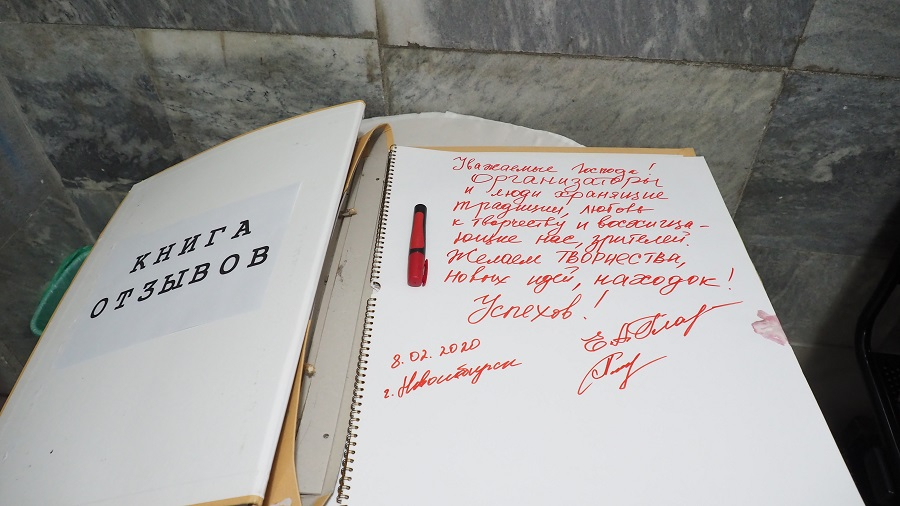 КНИГА
ОТЗЫВОВ
Уважаемые Господа!
Организаторы
и люди хранящие
традиции, любовь
к творчеству и восхища-
ющие нас, зрителей.
Желаем творчества,
новых идей, находок!
Успехов!
8.02.2020
г. Новосибирск